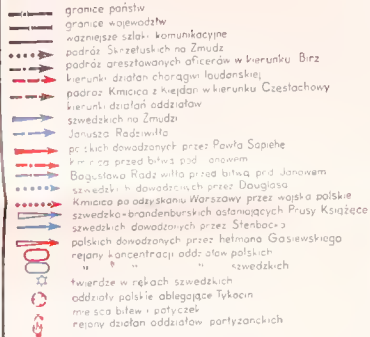 granice państw
granice województw
ważniejsze szlaki komunikacyjne
podróż Skrzetuskich na Żmudź
podróż aresztowanych oficerów w kierunku Birż
kierunki działań chorągwi laudańskiej
podróż Kmicica z Kiejdan w kierunku Częstochowy
kierunki działań oddziałów
szwedzkich na Żmudzi
Janusza Radziwiłła
polskich dowodzonych przez Pawła Sapiehę
Kmicica przed bitwą pod Janowem
Bogusława Radziwiłła przed bitwą pod Janowem
szwedzkich dowodzonych przez Douglasa
Kmicica po odzyskaniu Warszawy przez wojska polskie
szwedzko-brandenburskich osłaniających Prusy Książęce
szwedzkich dowodzonych przez Stenbocka
polskich dowodzonych przez hetmana Gosiewskiego
rejony koncentracji oddziałów polskich
" " " szwedzkich
twierdze w rękach szwedzkich
oddziały polskie oblegające Tykocin
miejsca bitew i potyczek
rejony działań oddziałów partyzanckich